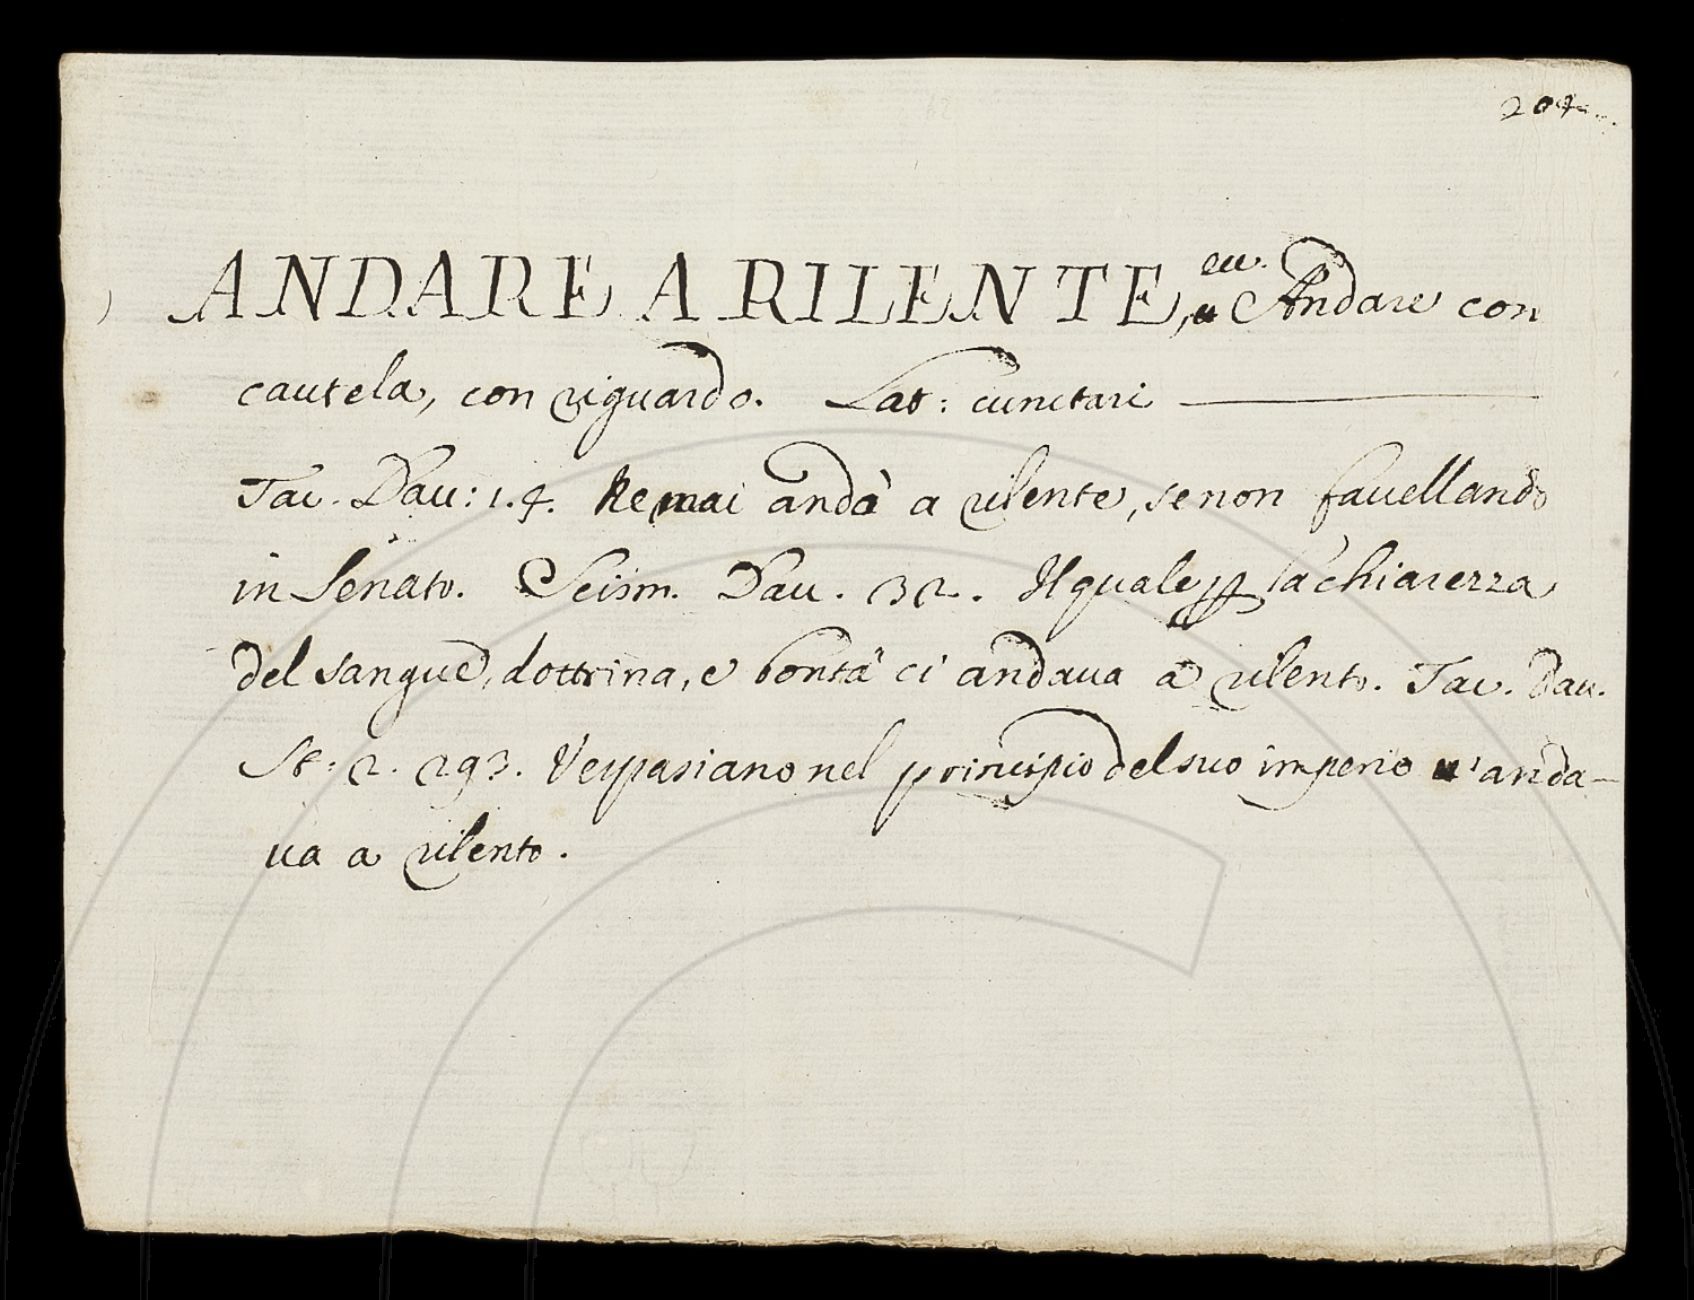 204
ANDARE A RILENTE, ec. Andare con
cautela, con riguardo. Lat: cunctari
Tac. Dau: 1. 4. Ne mai andò a rilente, se non fauellando
in Senato. Scism. Dau. 32. Il quale ꝑ la chiarezza
del sangue, dottrina, e bontà ci andaua à rilento. Tac. Dau.
St: 2. 293. Vespasiano nel principio del suo imperio u'anda-
ua a rilento.